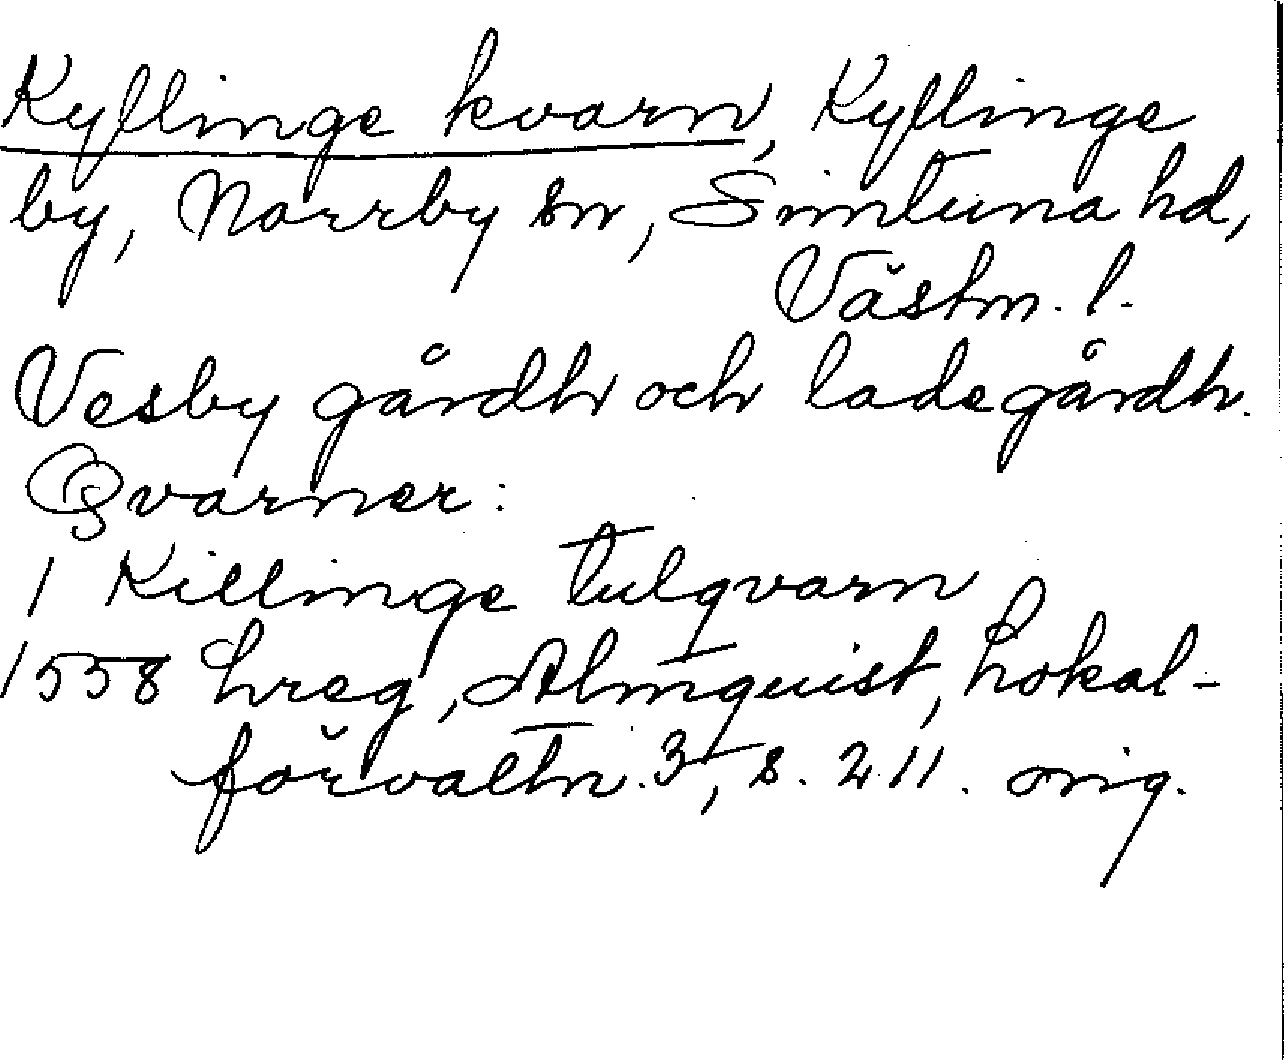 Kyflinge kvarn, Kyflinge
by, Norrby sn, Simtuna hd,
Västm. l.
Vesby gårdh och ladegårdh.
Qvarner:
1 Killinge tulqvarn
1558 Lreg, Almquist, Lokal-
förvaltn. 3, s. 211. orig.